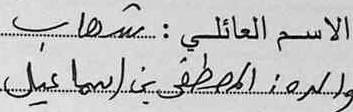 الاسم العائلي : شهاب
والده : المصطفى بن إسماعيل